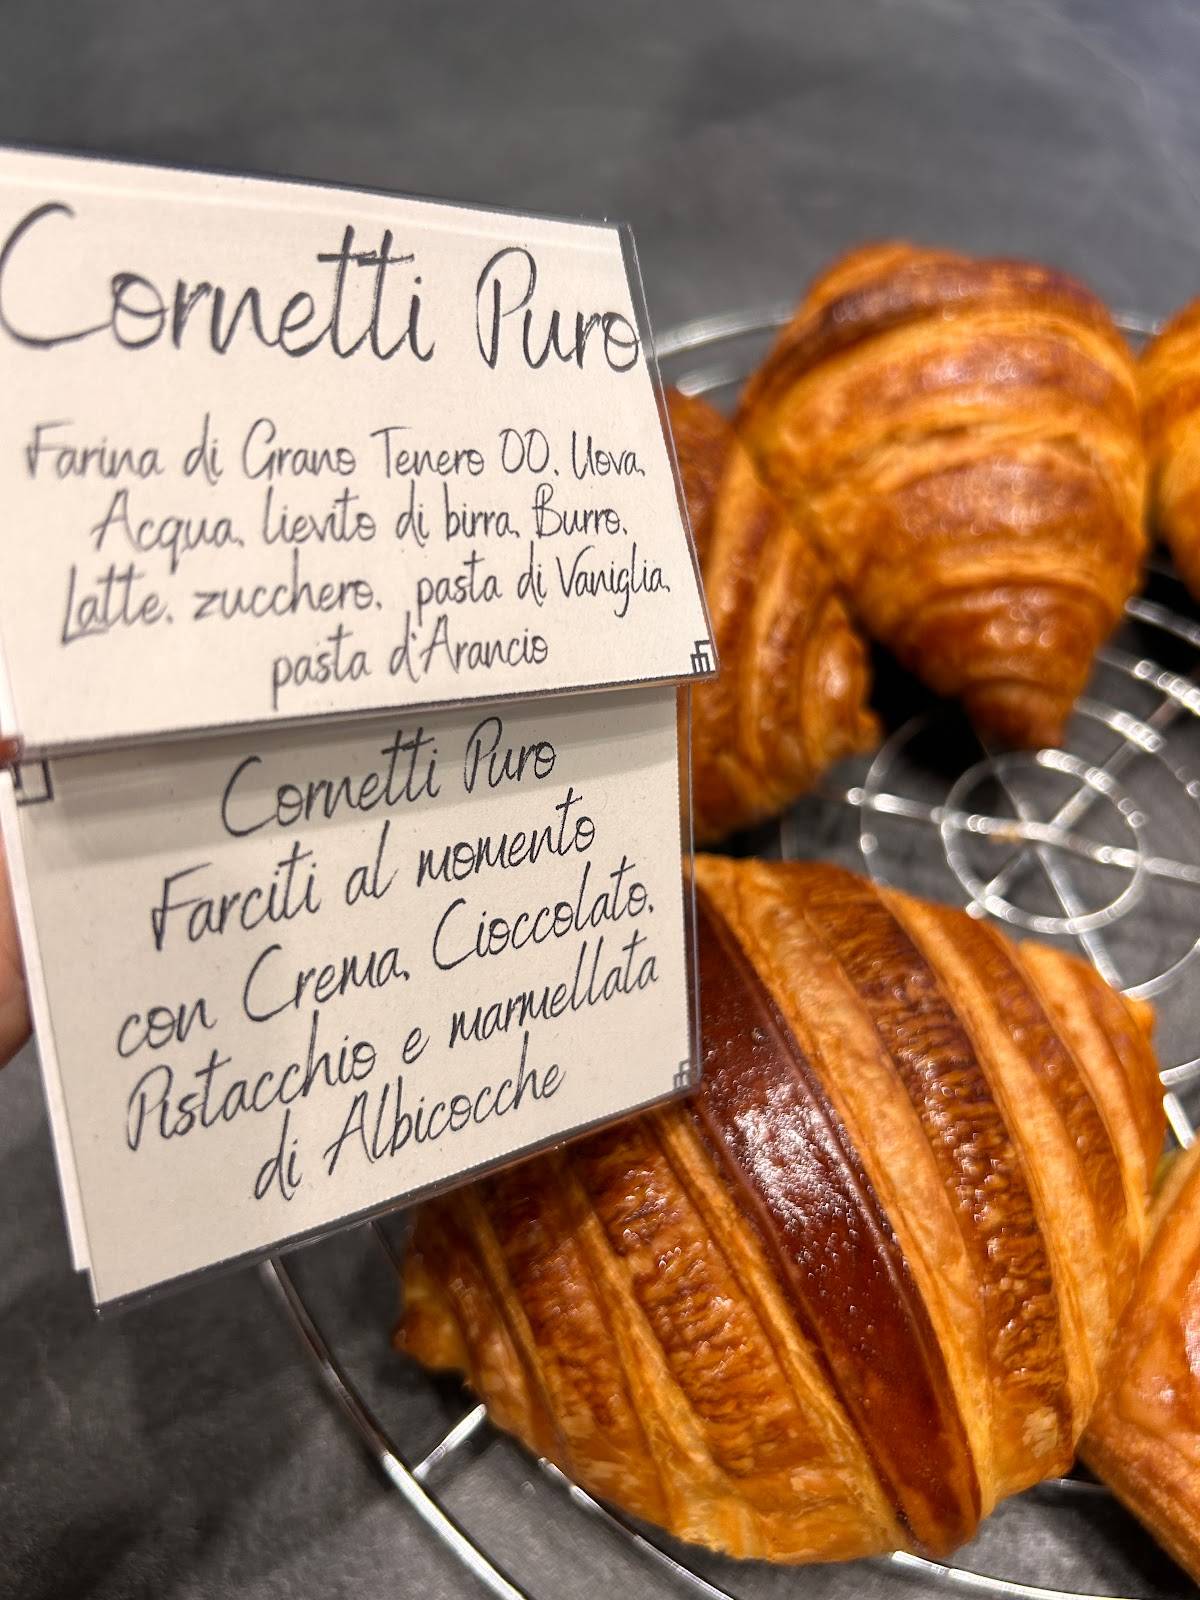 Cornetti Puro
Farina di Grano Tenero 00, Uova,
Acqua, lievito di birra, Burro,
Latte, zucchero, pasta di Vaniglia,
pasta d'Arancio
Cornetti Puro
Farciti al momento
con Crema, Cioccolato,
Pistacchio e marmellata
di Albicocche